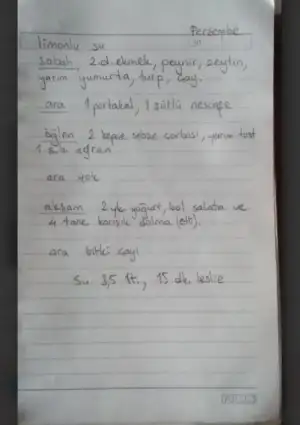 Perşembe
limonlu su
sabah 2 d. ekmek, peynir, zeytin,
yarım yumurta, turp, çay.
ara 1 portakal, 1 sütlü nescafe
öğlen 2 kepçe sebze çorbası, yarım tost
1 ayran
ara yok
akşam 2 yk yoğurt, bol salata ve
4 tane karışık dolma (etli).
ara bitki çayı
su 3,5 lt., 15 dk. leslie